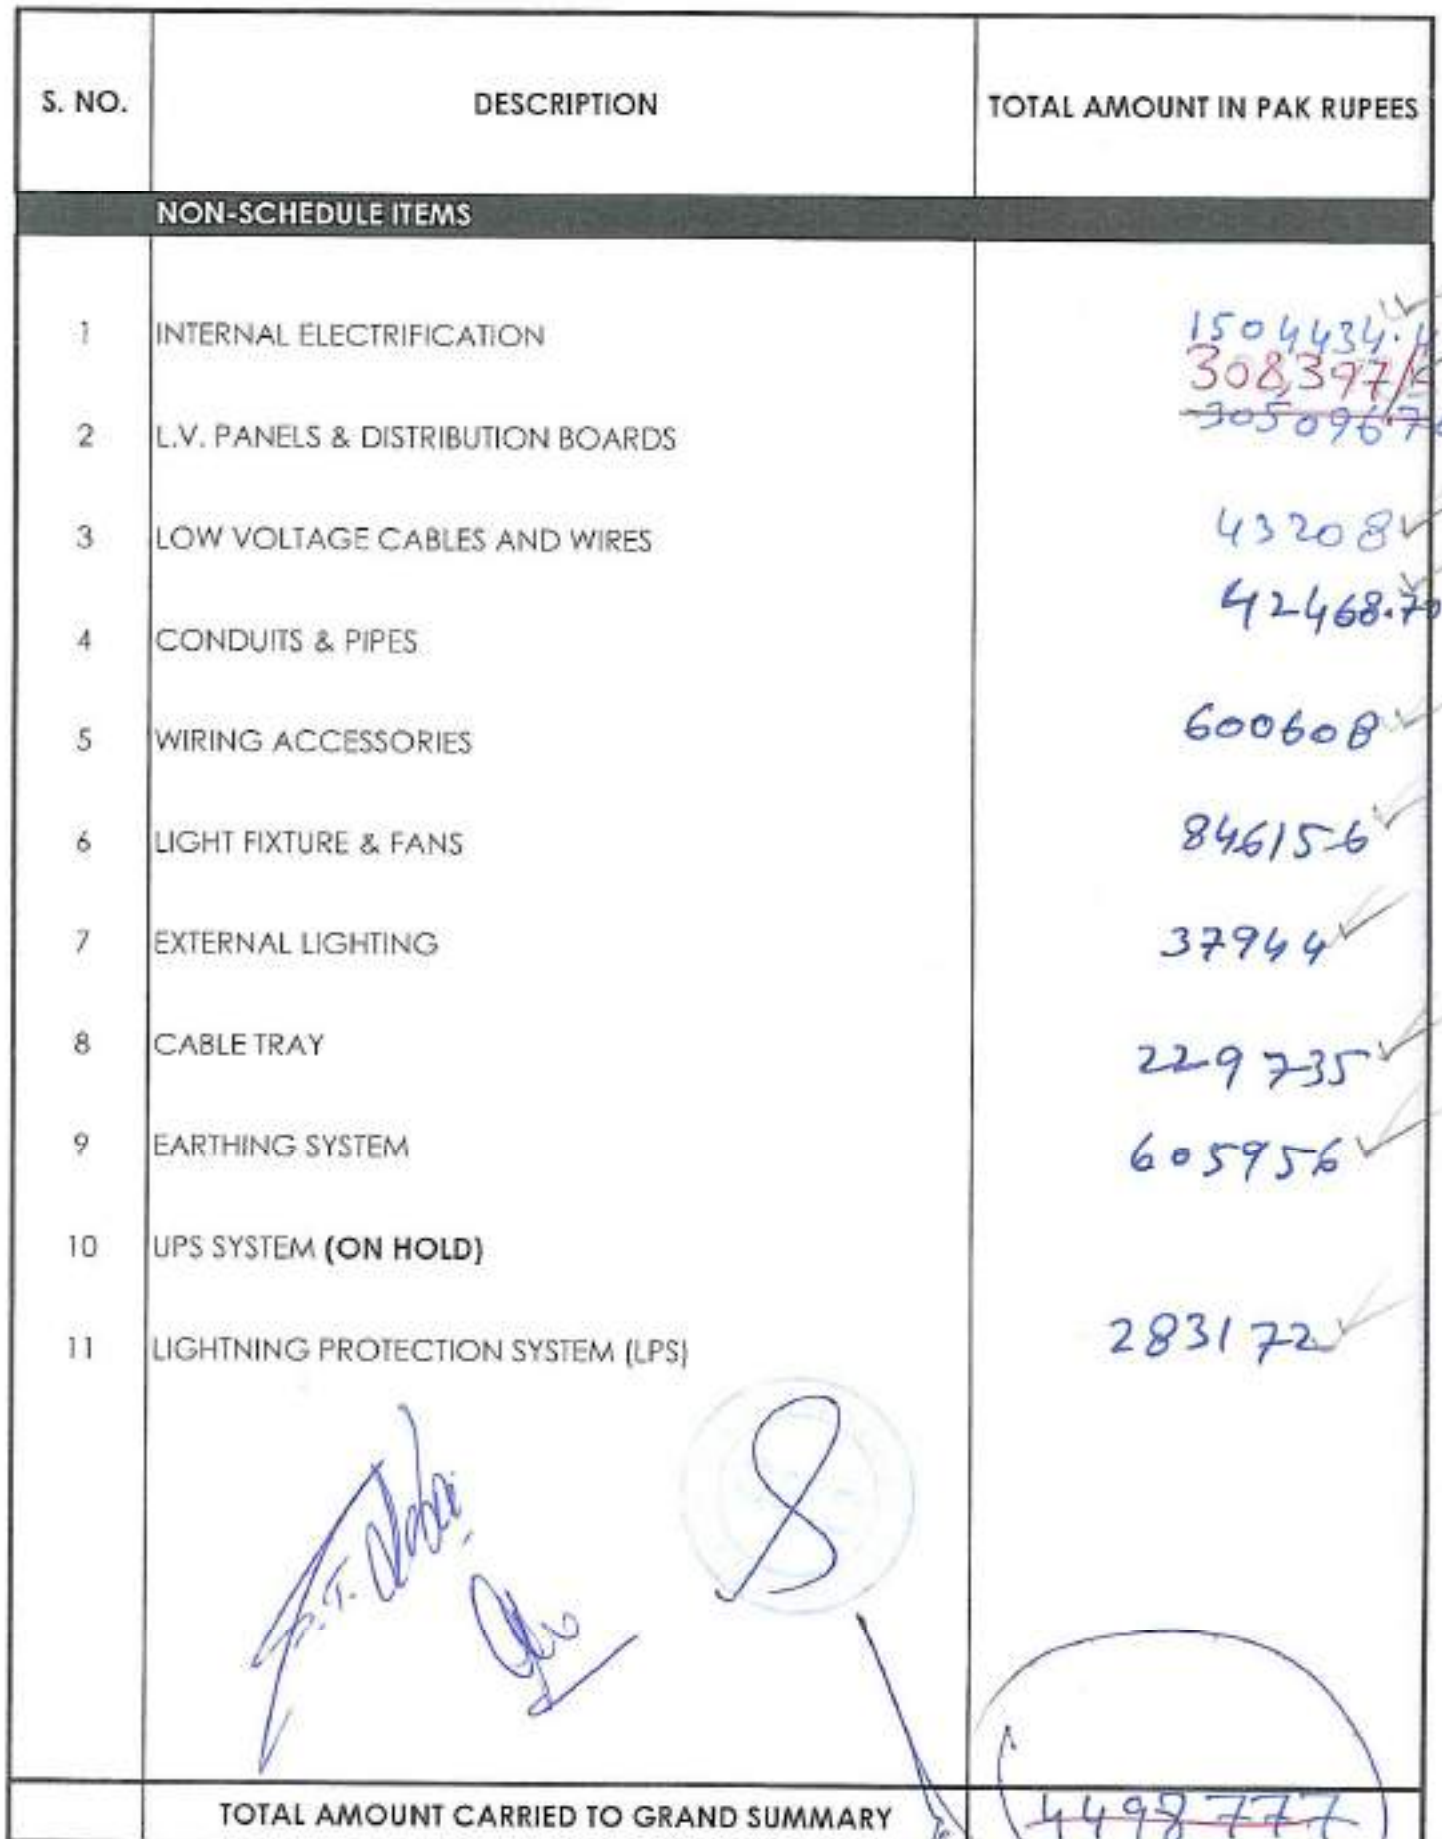 S. NO. DESCRIPTION TOTAL AMOUNT IN PAK RUPEES
NON-SCHEDULE ITEMS
1 INTERNAL ELECTRIFICATION 1504434.4
308,397/
2 L.V. PANELS & DISTRIBUTION BOARDS 305096.70
3 LOW VOLTAGE CABLES AND WIRES 43208
4 CONDUITS & PIPES 42468.70
5 WIRING ACCESSORIES 600608
6 LIGHT FIXTURE & FANS 846156
7 EXTERNAL LIGHTING 37944
8 CABLE TRAY 229735
9 EARTHING SYSTEM 605956
10 UPS SYSTEM (ON HOLD)
11 LIGHTNING PROTECTION SYSTEM (LPS) 283172
TOTAL AMOUNT CARRIED TO GRAND SUMMARY 4498777